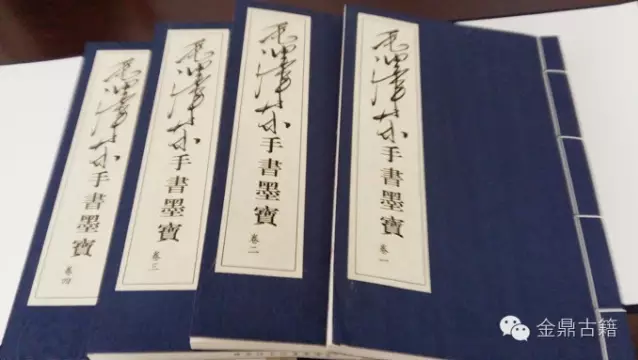 毛泽东手書墨寶
卷四
毛泽东手書墨寶
卷三
毛泽东手書墨寶
卷二
毛泽东手書墨寶
卷一
金鼎古籍